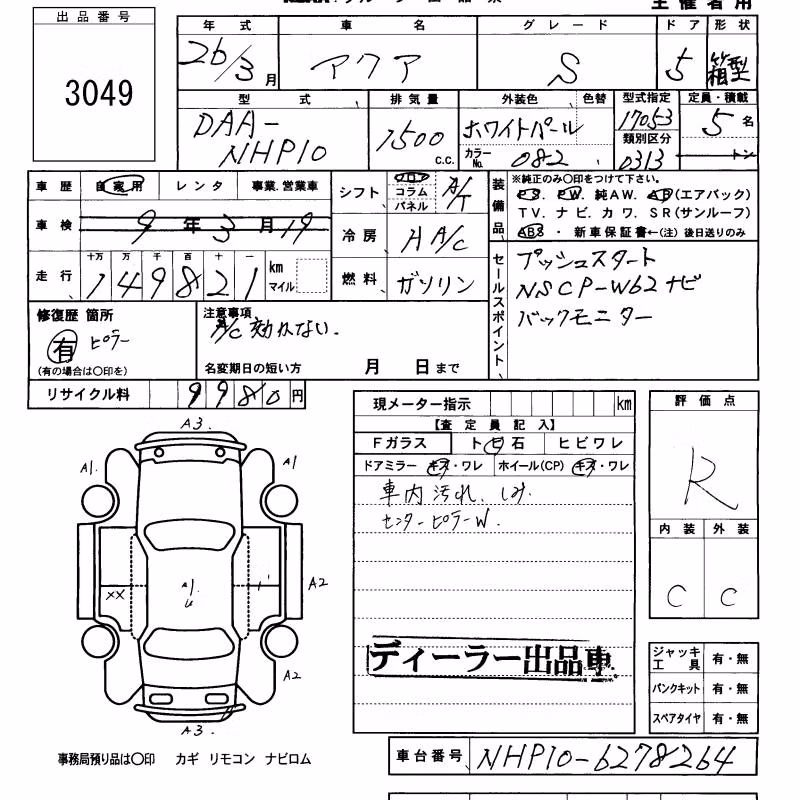 主催者用
出品番号
3049
年式 車名 グレード ドア 形状
26/3月 アクア S 5 箱型
型式 排気量 外装色 色替 型式指定 定員・積載
DAA-NHP10 1500c.c. ホワイトパール 17053 5名
カラーNo. 082 類別区分 0313 トン
車歴 自家用 レンタ 事業.営業車
シフト フロア コラム パネル A/T
装備品 ※純正のみ○印をつけて下さい。
PS. PW. 純AW. AB(エアバック)
TV. ナビ. カワ. SR(サンルーフ)
ABS ・ 新車保証書←(注) 後日送りのみ
車検 9年3月19
冷房 H A/C
走行 十万 万 千 百 十 一
149821 km マイル
燃料 ガソリン
セールスポイント
プッシュスタート
NSCP-W62ナビ
バックモニター
修復歴 箇所
有 ピラー
(有の場合は○印を)
注意事項
A/C 効かない.
名変期日の短い方 月 日まで
リサイクル料 9980円
現メーター指示 km
評価点
R
【査定員記入】
Fガラス ト ビ 石 ヒビワレ
ドアミラー キズ・ワレ ホイール(CP) キズ・ワレ
車内汚れ、しみ.
センターピラーW.
内装 外装
C C
A3.
A1. A1
XX A1. U 1' A2
A2
A3.
ディーラー出品車
ジャッキ工具 有・無
パンクキット 有・無
スペアタイヤ 有・無
事務局預り品は○印 カギ リモコン ナビロム
車台番号 NHP10-6278264